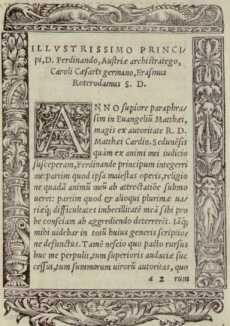 ILLVSTRISSIMO PRINCI
pi, D. Ferdinando, Austriæ archistratego,
Caroli Cæsaris germano, Erasmus
Roterodamus S. D.
ANNO superiore paraphra
sim in Euangeliũ Matthæi,
magis ex autoritate R. D.
Matthæi Cardin. Sedunẽsis
quàm ex animi mei iudicio
susceperam, Ferdinande princeps integerri
me: partim quod ipsa maiestas operis, religio
ne quadã animũ meũ ab attrectatiõe submo
ueret: partim quod et alioqui plurimæ ua
riæq; difficultates imbecillitatẽ meã sibi pro
be consciam ab aggrediendo deterrerẽt. Iãq;
mihi uidebar in totũ huius generis scriptiõe
ne defunctus. Tamẽ nescio quo pacto rursus
huc me perpulit, tum superioris audaciæ suc
cessus, tum summorum uirorũ autoritas, quo
a 2 rum